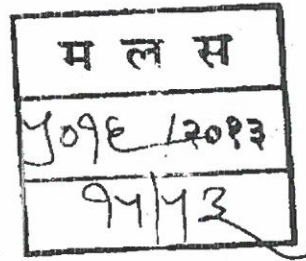 म ल स
५०१६ /२०१३
१५/५३